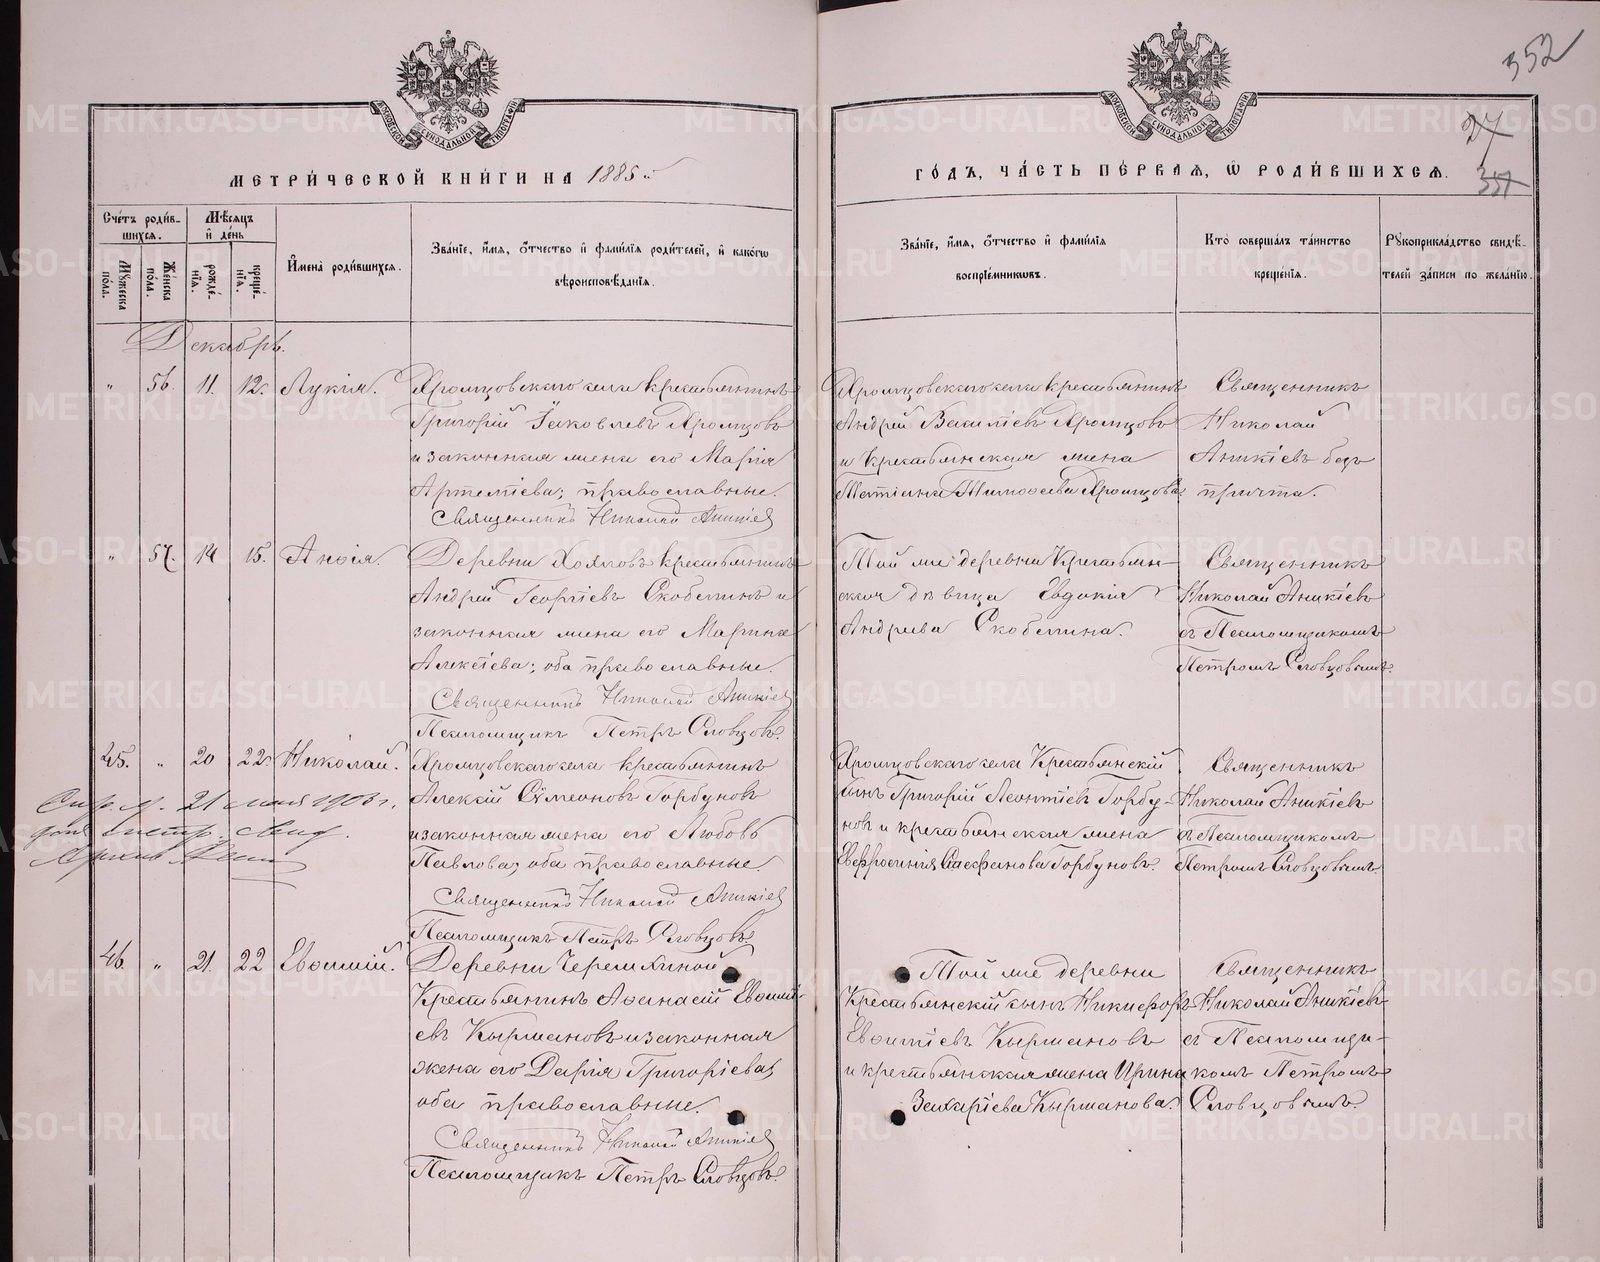 352
27
357
МЕТРИ́ЧЕСКОЙ КНИ́ГИ НА 1885 й
ГО́ДЪ, ЧА́СТЬ ПЕ́РВАЯ, Ѽ РОДИ́ВШИХСЯ.
Сче́тъ роди́в-
шихся.
Мꙋжеска по́ла.
Же́нска по́ла.
Мѣ́сяцъ
и҆ де́нь
рожде́-
нїя.
креще́-
нїя.
И҆мена̀ роди́вшихся.
Зва́нїе, и҆́мя, ѻ҆́тчество и҆ фами́лїя роди́телей, и҆ како́гѡ
вѣроисповѣ́данїя.
Зва́нїе, и҆́мя, ѻ҆́тчество и҆ фами́лїя
воспрїе́мникѡвъ.
Кто̀ соверша́лъ та́инство
креще́нїя.
Рꙋкоприкла́дство свидѣ́-
телей за́писи по жела́нїю.
Декабрь.
" 56. 11. 12. Лукія.
Хромцовскаго села крестьянинъ
Григорій Іаковлевъ Хромцовъ
и законная жена его Марія
Артеміева; православные.
Священникъ Николай Аникіев
Хромцовскаго села крестьянинъ
Андрей Василіевъ Хромцовъ
и Крестьянская жена
Татіана Тимоѳеева Хромцова
Священникъ
Николай
Аникіевъ безъ
причта.
" 57. 14 15. Анѳія.
Деревни Холмовъ крестьянинъ
Андрей Георгіевъ Скобелинъ и
законная жена его Марина
Алексіева; оба православные.
Священникъ Николай Аникіев
Псаломщикъ Петръ Словцовъ.
Той же деревни Крестьян-
ская дѣвица Евдокія
Андреева Скобелина.
Священникъ
Николай Аникіевъ
съ Псаломщикомъ
Петромъ Словцовымъ.
45. " 20 22. Николай.
21 мая 1903 г.
Хромцовскаго села крестьянинъ
Алексій Сѵмеоновъ Горбуновъ
и законная жена его Любовь
Павлова; оба православные.
Священникъ Николай Аникіев
Псаломщикъ Петръ Словцовъ.
Хромцовскаго села Крестьянскій
сынъ Григорій Леонтіевъ Горбу-
новъ и крестьянская жена
Евфросинія Стефанова Горбуновъ.
Священникъ
Николай Аникіевъ
съ Псаломщикомъ
Петромъ Словцовымъ.
46. " 21. 22 Евѳимій.
Деревни Черемхиной
Крестьянинъ Аѳанасій Евѳимі-
евъ Кырмановъ и законная
жена его Дарія Григоріева;
оба православные.
Священникъ Николай Аникіев
Псаломщикъ Петръ Словцовъ.
Той же деревни
Крестьянскій сынъ Никифоръ
Евѳиміевъ Кырмановъ
и крестьянская жена Ирина
Захаріева Кырманова.
Священникъ
Николай Аникіевъ
съ Псаломщи-
комъ Петромъ
Словцовымъ.